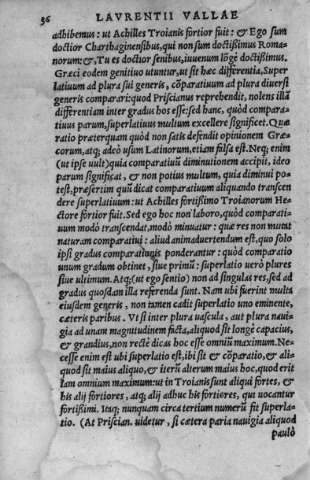 36 LAVRENTII VALLAE
adhibemus: ut Achilles Troianis fortior fuit: & Ego sum
doctior Carthaginensibus, qui non sum doctißimus Roma-
norum: &, Tu es doctior senibus, iuuenum lõge doctißimus.
Græci eodem genitiuo utuntur, ut sit hæc differentia, Super
latiuum ad plura sui generis, cõparatiuum ad plura diuersi
generis comparari: quod Priscianus reprehendit, nolens illã
differentiam inter gradus hos esse: sed hanc, quòd compara-
tiuus parum, superlatiuus multum excellere significet. Quæ
ratio præterquam quòd non satis defendit opinionem Græ-
corum, atq; adeò usum Latinorum, etiam falsa est. Neq; enim
(ut ipse uult) quia comparatiuũ diminutionem accipit, ideo
parum significat, & non potius multum, quia diminui po-
test, præsertim quũ dicat comparatiuum aliquando transcen
dere superlatiuum: ut Achilles fortißimo Troianorum He-
ctore fortior fuit. Sed ego hoc non laboro, quòd comparati-
uum modò transcendat, modò minuatur: quæ res non mutat
naturam comparatiui: aliud animaduertendum est, quo solo
ipsi gradus comparationis ponderantur: quòd comparatio
unum gradum obtinet, siue primũ: superlatio uerò plures
siue ultimum. Atq; (ut ego sentio) non ad singulas res, sed ad
gradus quosdam illa referenda sunt. Nam ubi fuerint multa
eiusdem generis, non tamen cadit superlatio uno eminente,
cæteris paribus. Vt si inter plura uascula, aut plura naui-
gia ad unam magnitudinem facta, aliquod sit longè capacius,
& grandius, non rectè dicas hoc esse omniũ maximum. Ne-
cesse enim est ubi superlatio est, ibi sit & cõparatio, & ali-
quod sit maius aliquo, & iterũ alterum maius hoc, quod erit
iam omnium maximum: ut in Troianis sunt aliqui fortes, &
his alij fortiores, atq; alij adhuc his fortiores, qui uocantur
fortißimi. Itaq; nunquam circa tertium numerũ fit superla-
tio. (At Priscian. uidetur, si cætera paria nauigia aliquod
paulò